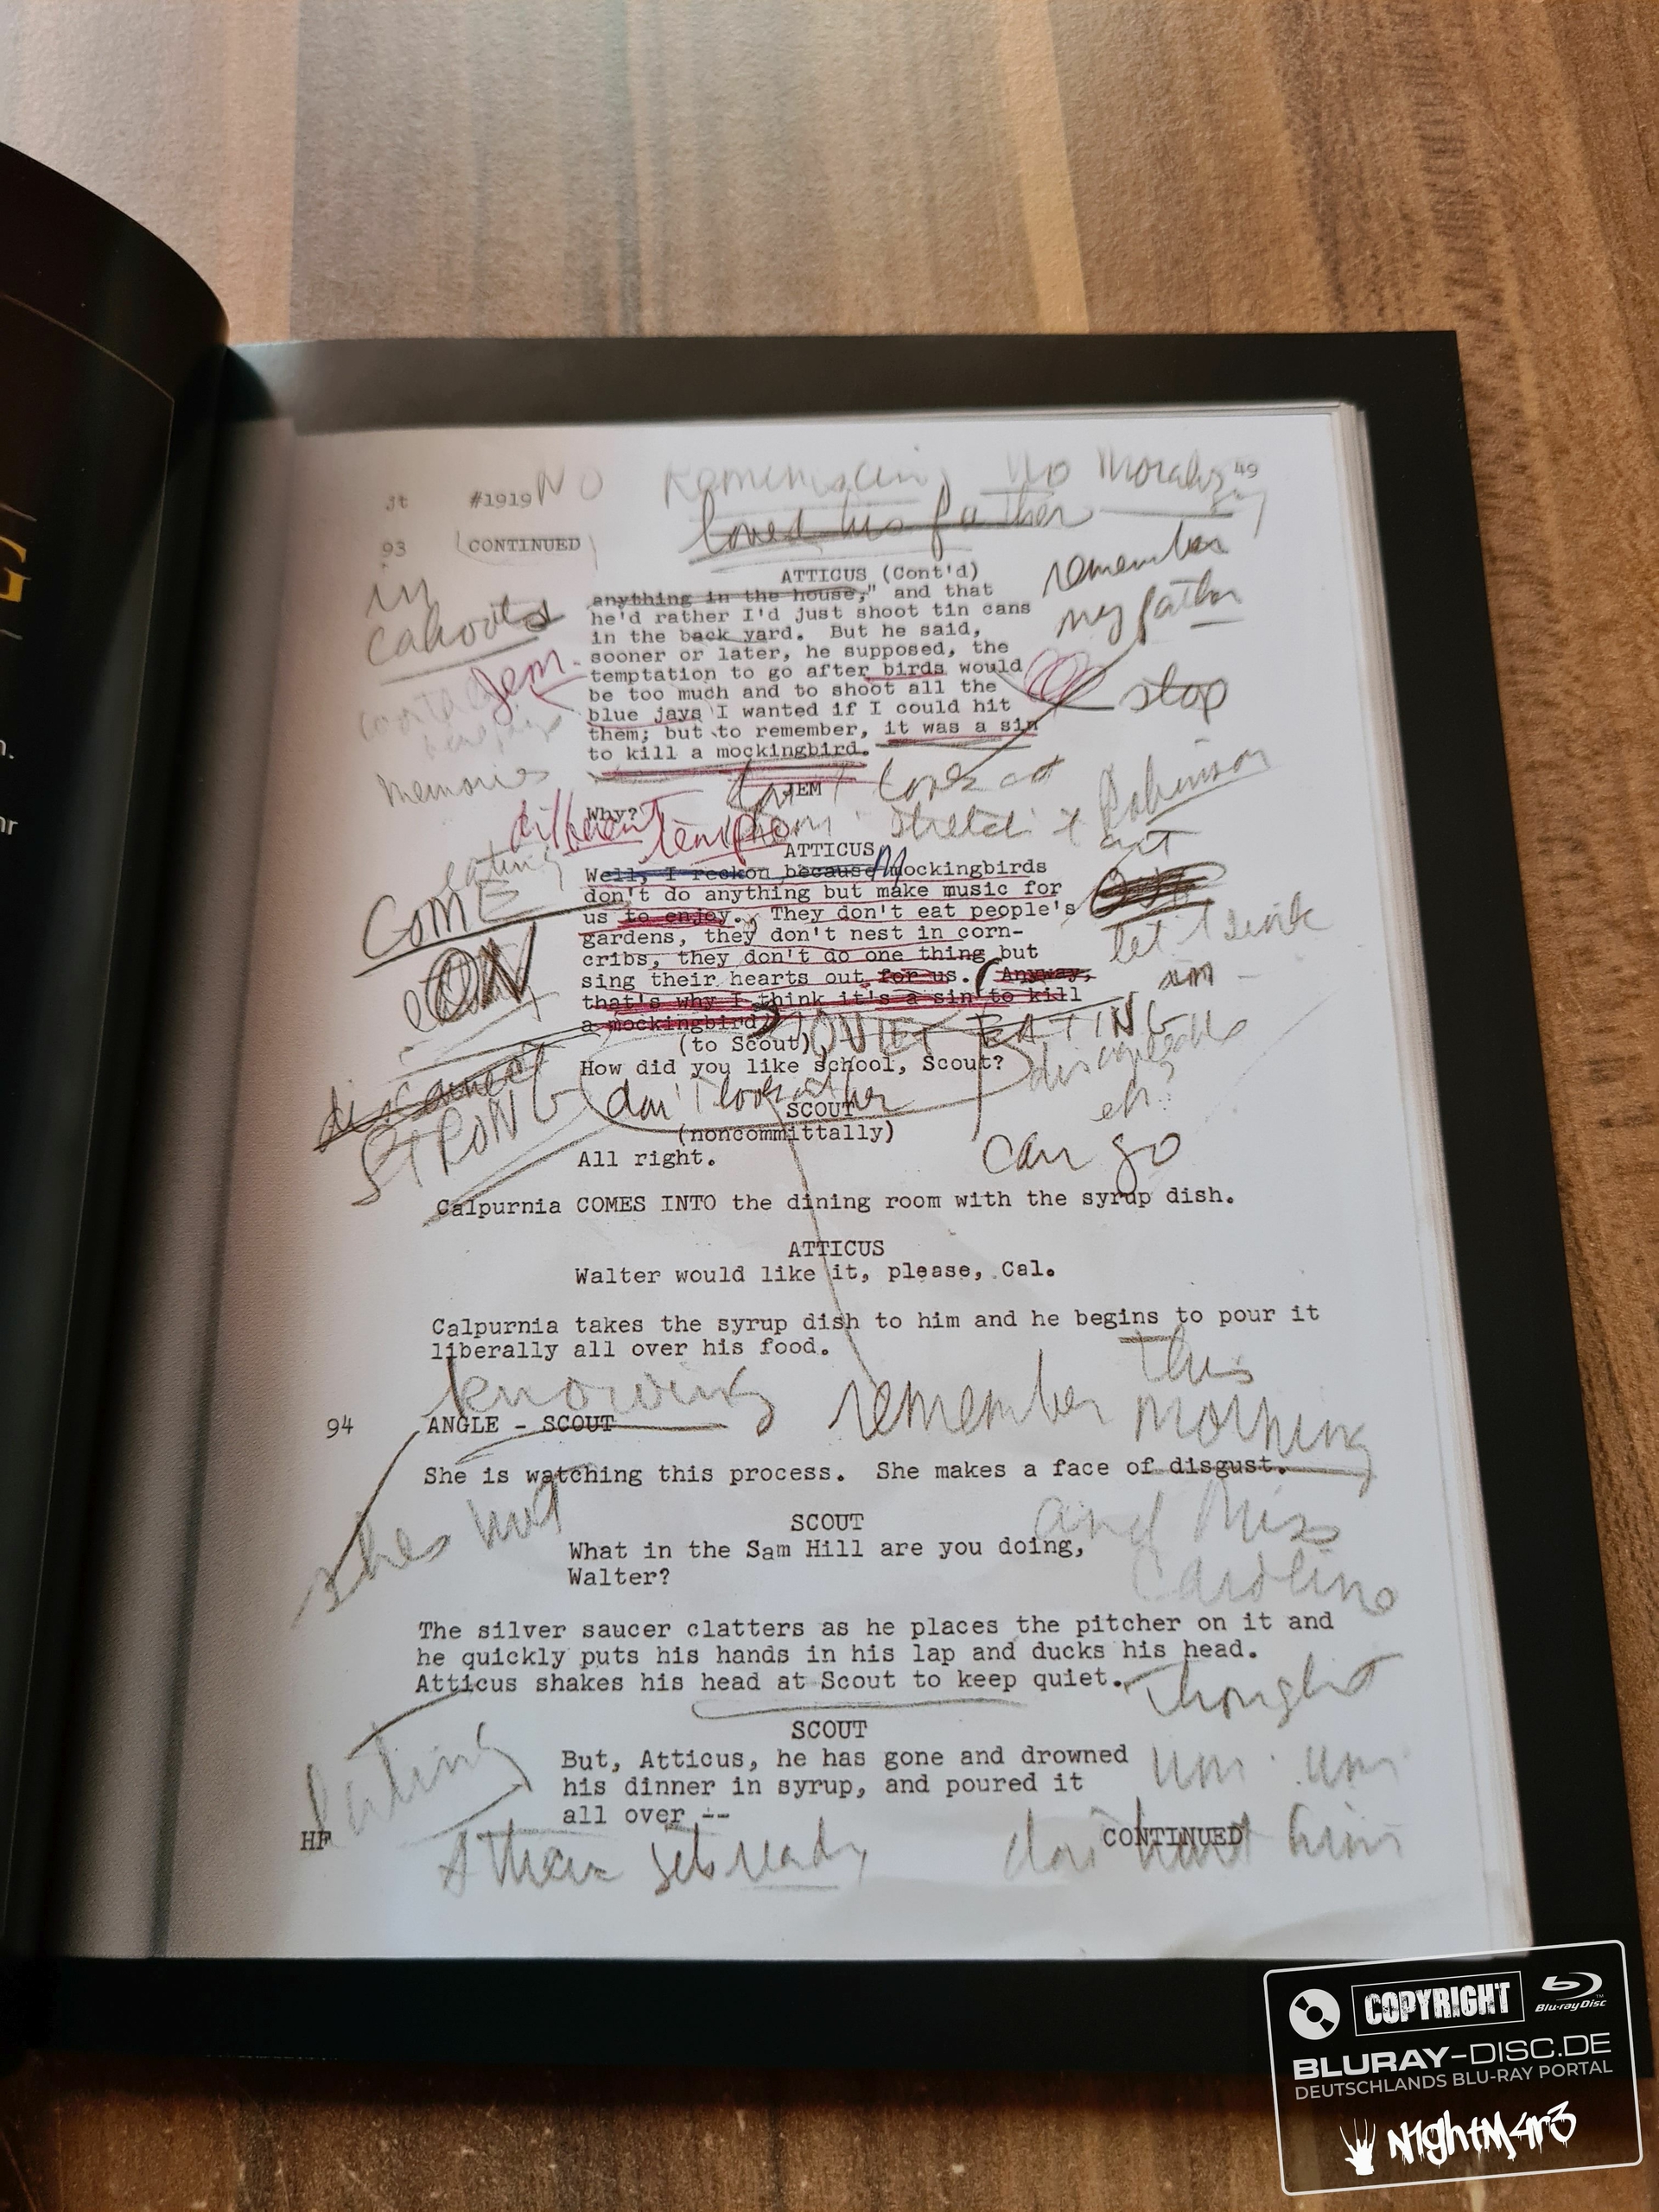 G
n.
hr
jt #1919 NO Reminiscing No Moralizing 49
loved his father
93 (CONTINUED)
in
cahoots
ATTICUS (Cont'd)
remember
my father
anything in the house," and that
he'd rather I'd just shoot tin cans
in the back yard. But he said,
sooner or later, he supposed, the
Jem
temptation to go after birds would
be too much and to shoot all the
stop
blue jays I wanted if I could hit
them; but to remember, it was a sin
to kill a mockingbird.
memories
JEM
don't look at
Robinson
Why?
different tempo
stretch
ATTICUS
eating
Well, I reckon because Mockingbirds
don't do anything but make music for
us to enjoy. They don't eat people's
COME
ON
gardens, they don't nest in corn-
cribs, they don't do one thing but
let it sink
sing their hearts out for us. (Anyway,
that's why I think it's a sin to kill
a mockingbird)
QUIET EATING
(to Scout)
How did you like school, Scout?
disconnect
STRONG
don't look at her
eh?
SCOUT
(noncommittally)
can go
All right.
Calpurnia COMES INTO the dining room with the syrup dish.
ATTICUS
Walter would like it, please, Cal.
Calpurnia takes the syrup dish to him and he begins to pour it
liberally all over his food.
knowing
remember this morning
94 ANGLE - SCOUT
She is watching this process. She makes a face of disgust.
shes hurt
and Miss
Caroline
SCOUT
What in the Sam Hill are you doing,
Walter?
The silver saucer clatters as he places the pitcher on it and
he quickly puts his hands in his lap and ducks his head.
Atticus shakes his head at Scout to keep quiet.
thought
SCOUT
But, Atticus, he has gone and drowned
his dinner in syrup, and poured it
all over --
um. um
HF
CONTINUED
gets ready
don't hurt him
COPYRIGHT Blu-ray Disc
BLURAY-DISC.DE
DEUTSCHLANDS BLU-RAY PORTAL
N1ghtM4r3